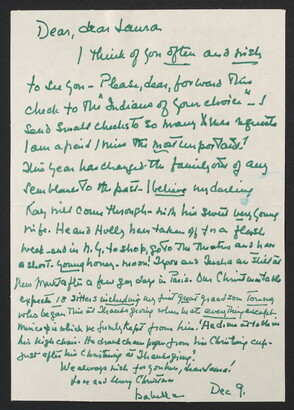 Dear, dear Laura
I think of you often and wish
to see you - Please, dear, forward this
check to the "Indians of your choice" - I
send small checks to so many Xmas requests
I am afraid I miss the most important!
This year has changed the family out of any
semblance to the past - I believe my darling
Ray will come through - with his sweet very young
wife. He and Holly have taken off to a flash
week-end in N.Y. to shop, go to the theatre and have
a short - young honey-moon! Igor and are still at
New after a few gay days in Paris. Our Christmas table
expects 18 sitters including my first great grandson
who began this at Thanksgiving when he ate everything except
Mincepie which we firmly kept from him! He dines at table in
his high chair. He drank champagne from his Christening cup -
just after his Christening at Thanksgiving!
We always wish for you here, dear Laura!
Love and Merry Christmas
Isabella
Dec 9.